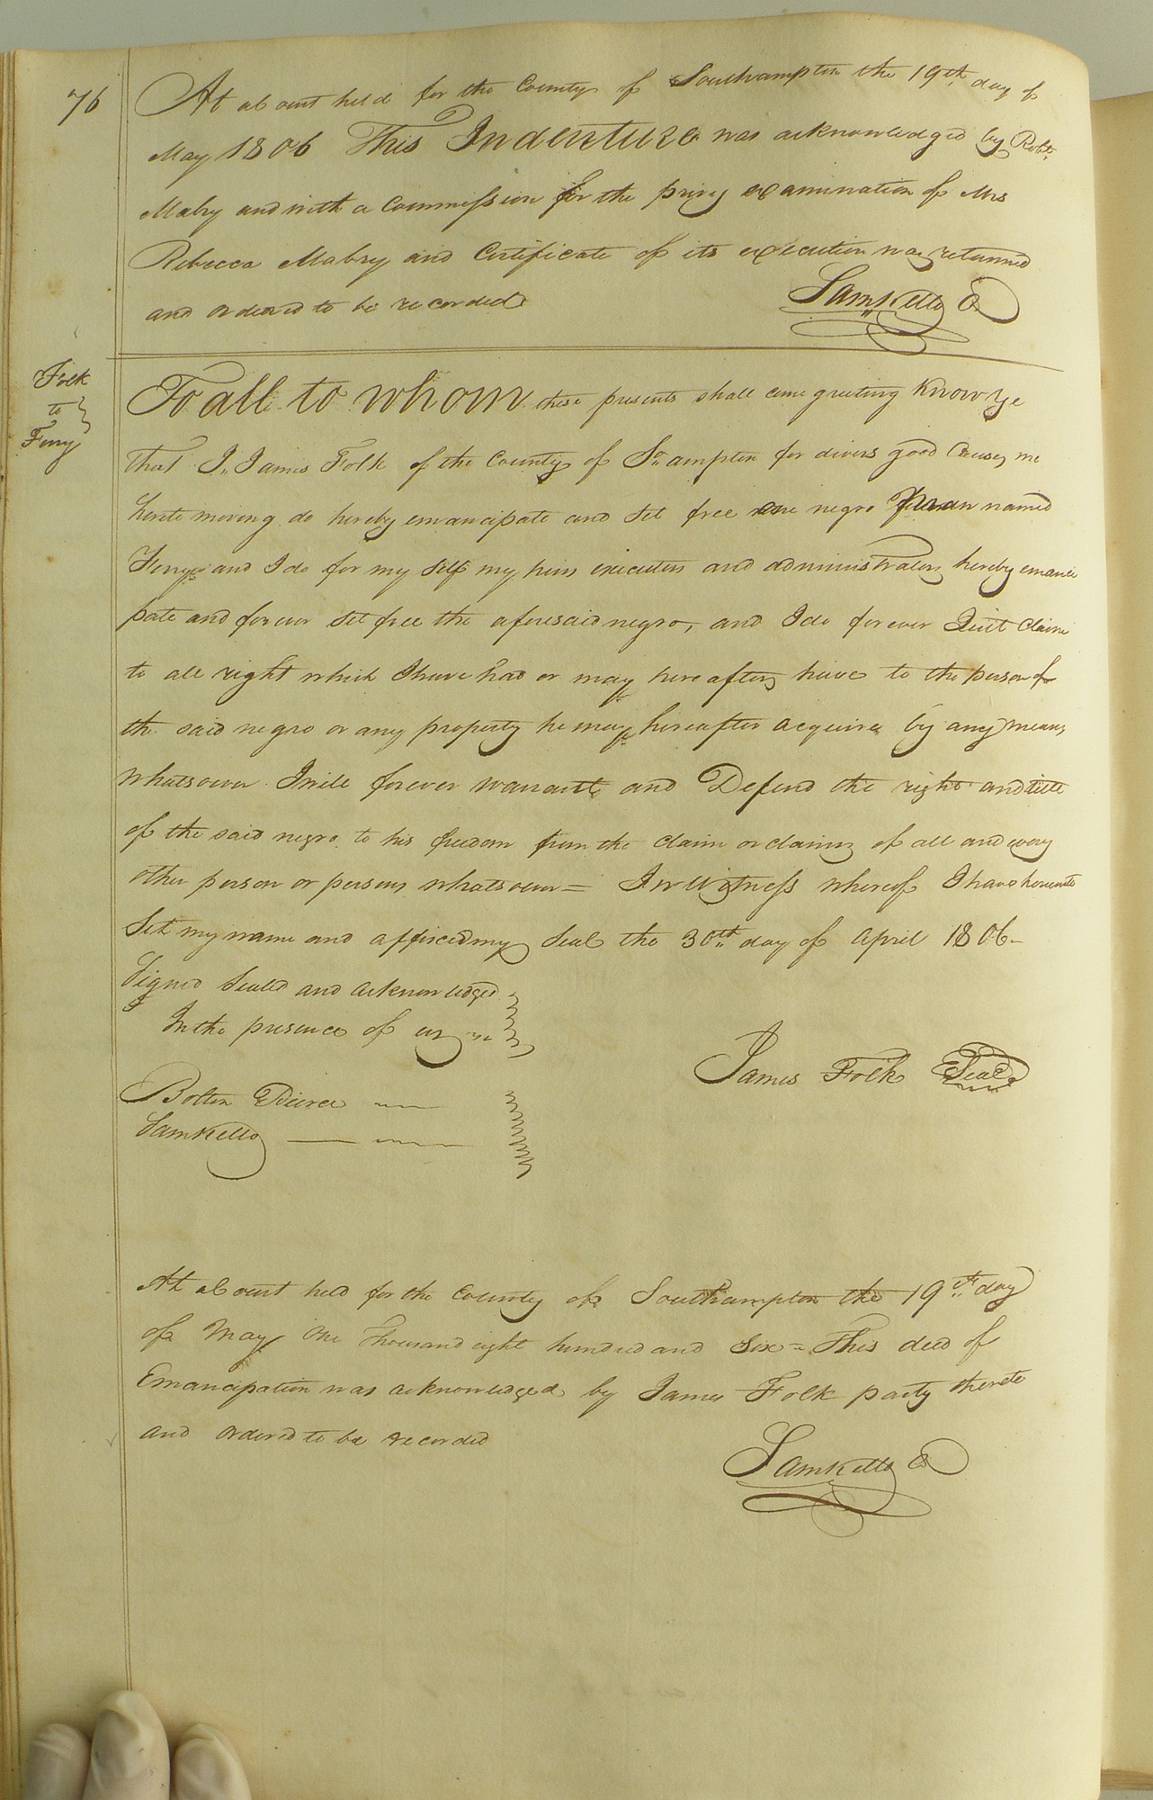 76
At a Court held for the County of Southampton the 19th day of
May 1806 This Indenture was acknowledged by Robt.
Mabry and with a Commission for the privy examination of Mrs
Rebecca Mabry and Certificate of its execution was returned
and ordered to be recorded
Sam Kello C
Folk
to
Ferry
To all to whom these presents shall come greeting Know ye
that I James Folk of the County of So.ampton for divers good Causes me
hereto moving do hereby emancipate and set free one negro man named
Ferry and I do for my self my heirs executors and administrators hereby emanci
pate and forever set free the aforesaid negro, and I do forever Quit Claim
to all right which I have had or may hereafter have to the person of
the said negro or any property he may hereafter acquire by any means
whatsoever I will forever warrant and Defend the right and title
of the said negro to his freedom from the claim or claims of all and every
other person or persons whatsoever = In witness whereof I have hereunto
Set my name and affixed my Seal the 30th day of April 1806 -
Signed Sealed and acknowledged
In the presence of us
James Folk Seal
Bolten Pierce
Sam Kello
At a Court held for the County of Southampton the 19th day
of May One Thousand eight hundred and Six = This deed of
Emancipation was acknowledged by James Folk party thereto
and ordered to be recorded
Sam Kello C